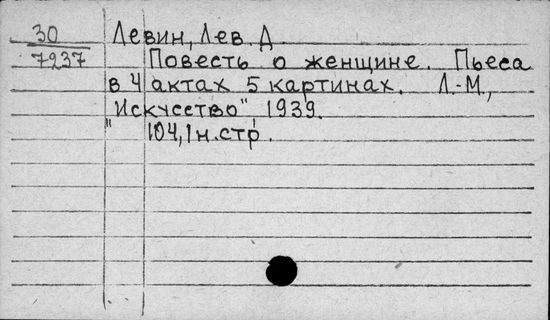 30 Левин, Лев. Д
7237 Повесть о женщине. Пьеса
в 4 актах 5 картинах. Л.-М.,
"Искусство" 1939.
104, 1 н. стр.